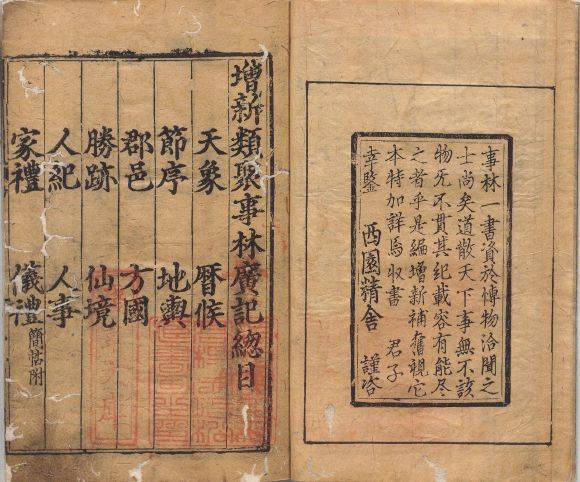 事林一書資於愽物洽聞之
士尚矣道散天下事無不該
物旡不貫其紀載容有能尽
之者乎是編增新補舊視它
本特加詳焉収書 君子
幸鑒 西園精舍 謹咨
增新類聚事林廣記總目
天象 曆候
節序 地輿
郡邑 方國
勝跡 仙境
人紀 人事
家禮 儀禮 簡帖附